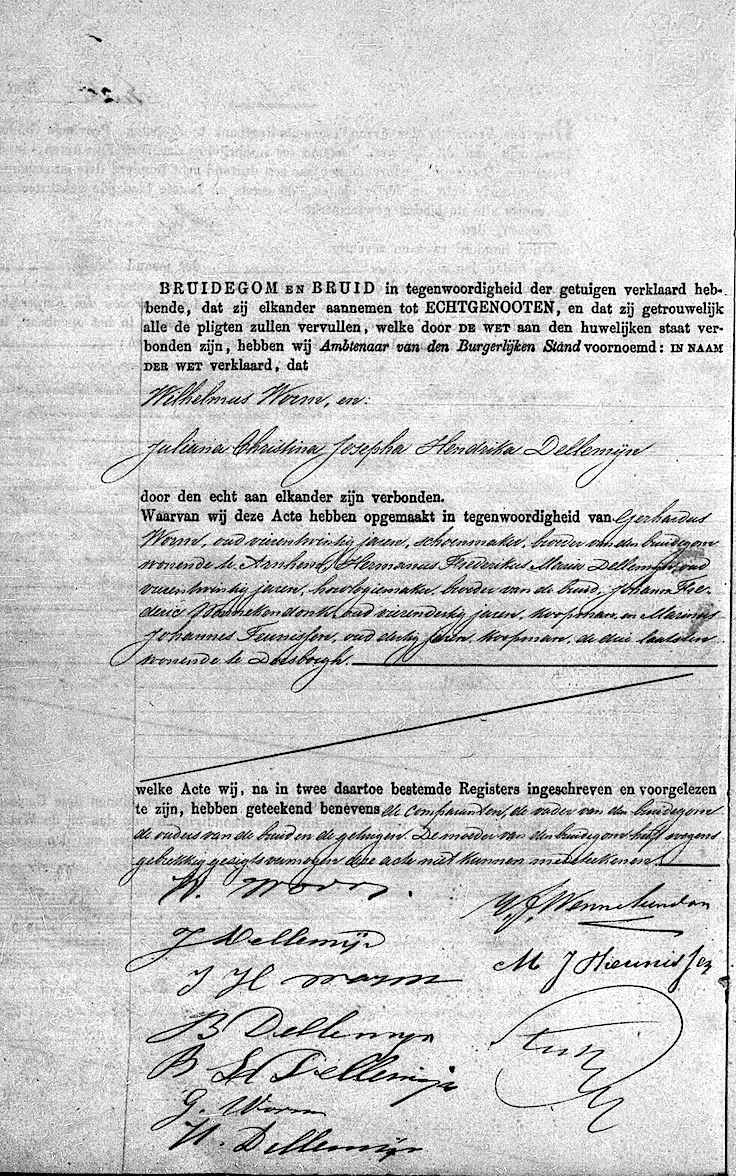 BRUIDEGOM EN BRUID in tegenwoordigheid der getuigen verklaard heb-
bende, dat zij elkander aannemen tot ECHTGENOOTEN, en dat zij getrouwelijk
alle de pligten zullen vervullen, welke door DE WET aan den huwelijken staat ver-
bonden zijn, hebben wij Ambtenaar van den Burgerlijken Stand voornoemd: IN NAAM
DER WET verklaard, dat
Wilhelmus Worm, en:
Juliana Christina Josepha Hendrika Dellemijn
door den echt aan elkander zijn verbonden.
Waarvan wij deze Acte hebben opgemaakt in tegenwoordigheid van Gerhardus
Worm, oud vierentwintig jaren, schoenmaker, broeder van den bruidegom
wonende te Arnhem, Hermanus Frederikus Maria Dellemijn, oud
vierentwintig jaren, horologiemaker, broeder van de bruid, Johann Fre-
deric Wennekendonk, oud vierendertig jaren, koopman, en Marinus
Johannes Teunissen, oud dertig jaren, koopman, de drie laatsten
wonende te Doesborgh.
welke Acte wij, na in twee daartoe bestemde Registers ingeschreven en voorgelezen
te zijn, hebben geteekend benevens de comparanten, de vader van den bruidegom
de ouders van de bruid en de getuigen. De moeder van den bruidegom heeft wegens
gebrekkig gezigtsvermogen deze acte niet kunnen medeteekenen.
W. Worm.
J Dellemijn
J H Worm
B Dellemijn
B Dellemijn
G. Worm
H. Dellemijn
Wennekendon
M J Theunissen